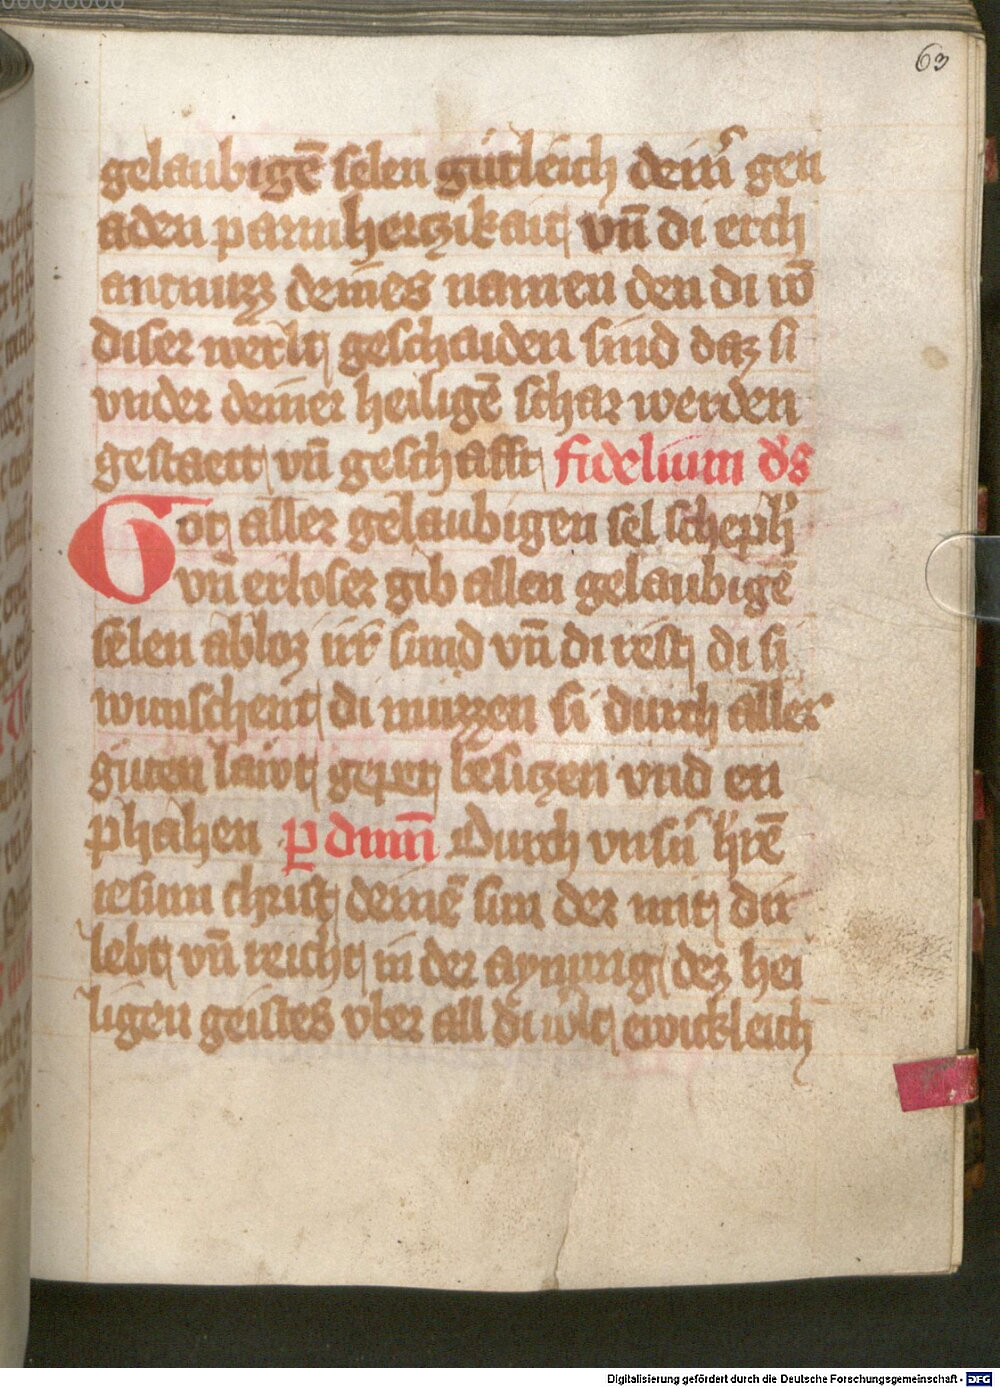 63
gelaubigē selen gütleich dein̄ gen
aden parmhertzikait vn̄ di erch
antnuzz deines namen den di vō
diser werlt geschaiden sind daz si
vnder deiner heiligē schar werden
gestaett vn̄ geschafft fidelium ds
Got aller gelaubigen sel scheph
vn̄ erloser gib allen gelaubigē
selen abloz irr sund vn̄ di rest di si
wunschent di muzzen si durch aller
guten lawt gepet besitzen vnd en
phahen P dnm̄ Durch vnsn̄ hrē
iesum christ deinē sun der mit dir
lebt vn̄ reicht in der aynung dez hei
ligen geistes vber all di wlt ewickleich
Digitalisierung gefördert durch die Deutsche Forschungsgemeinschaft - DFG